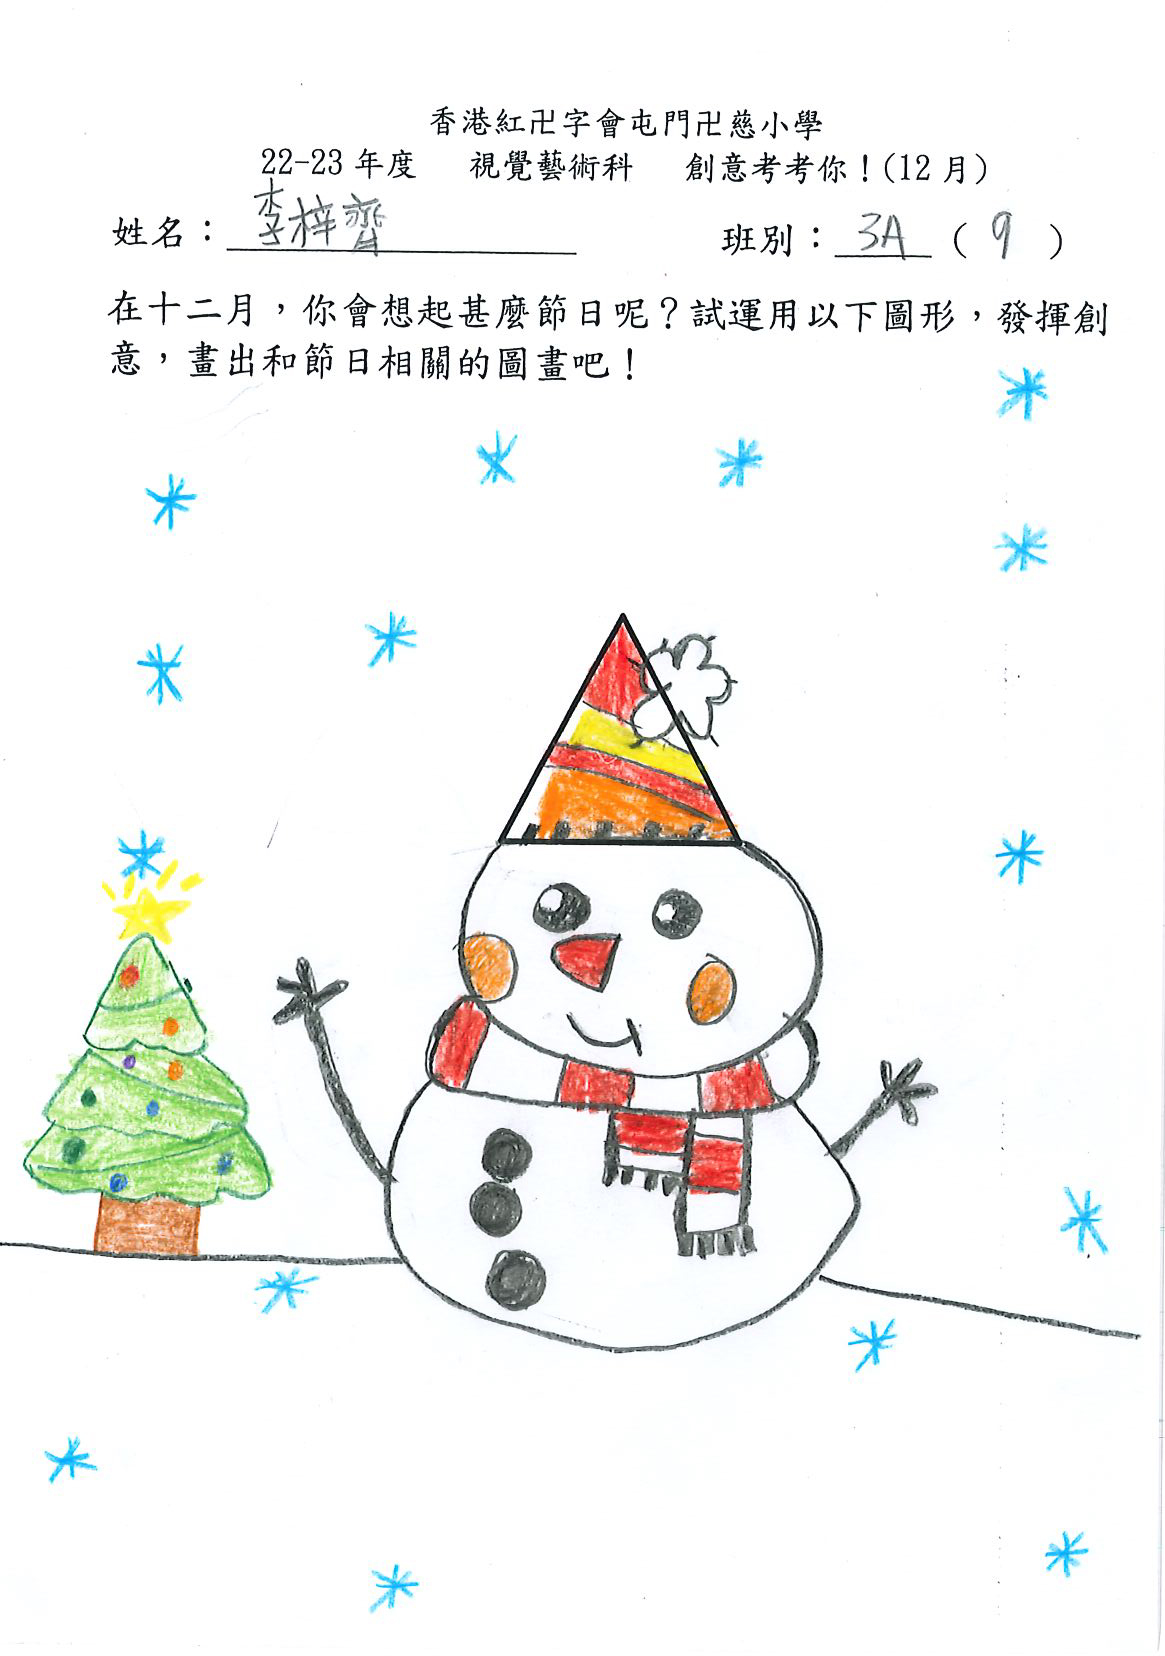 香港紅卍字會屯門卍慈小學
22-23 年度 視覺藝術科 創意考考你！(12 月)
姓名：李梓齊 班別：3A ( 9 )
在十二月，你會想起甚麼節日呢？試運用以下圖形，發揮創
意，畫出和節日相關的圖畫吧！